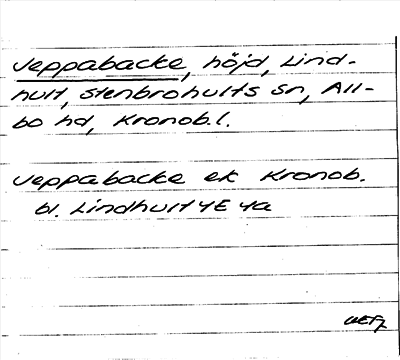 Veppabacke, höjd, Lind-
hult, Stenbrohults sn, All-
bo hd, Kronob.l.
Veppabacke ek Kronob.
bl. Lindhult 4E 4a